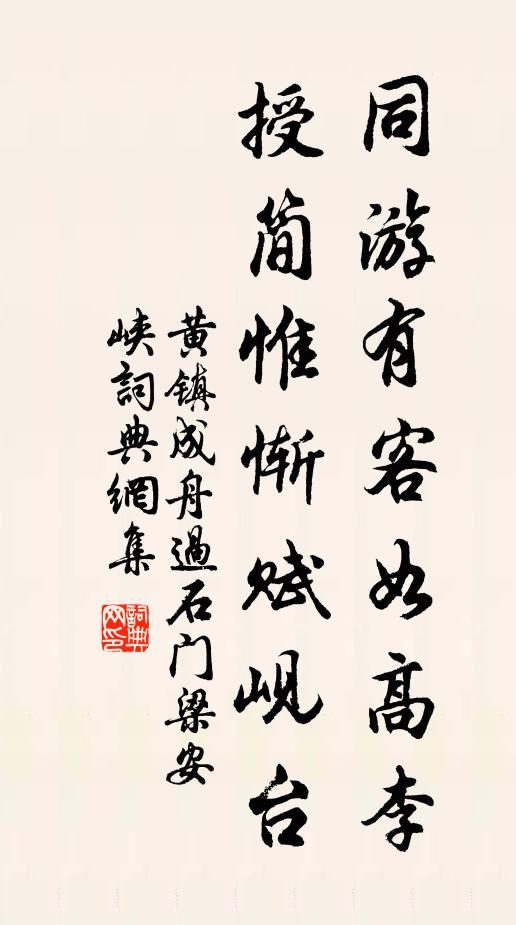 同游有客如高李
授简惟惭赋岘台
黄镇成舟過石门梁安
峡詞典網集
詞典網印